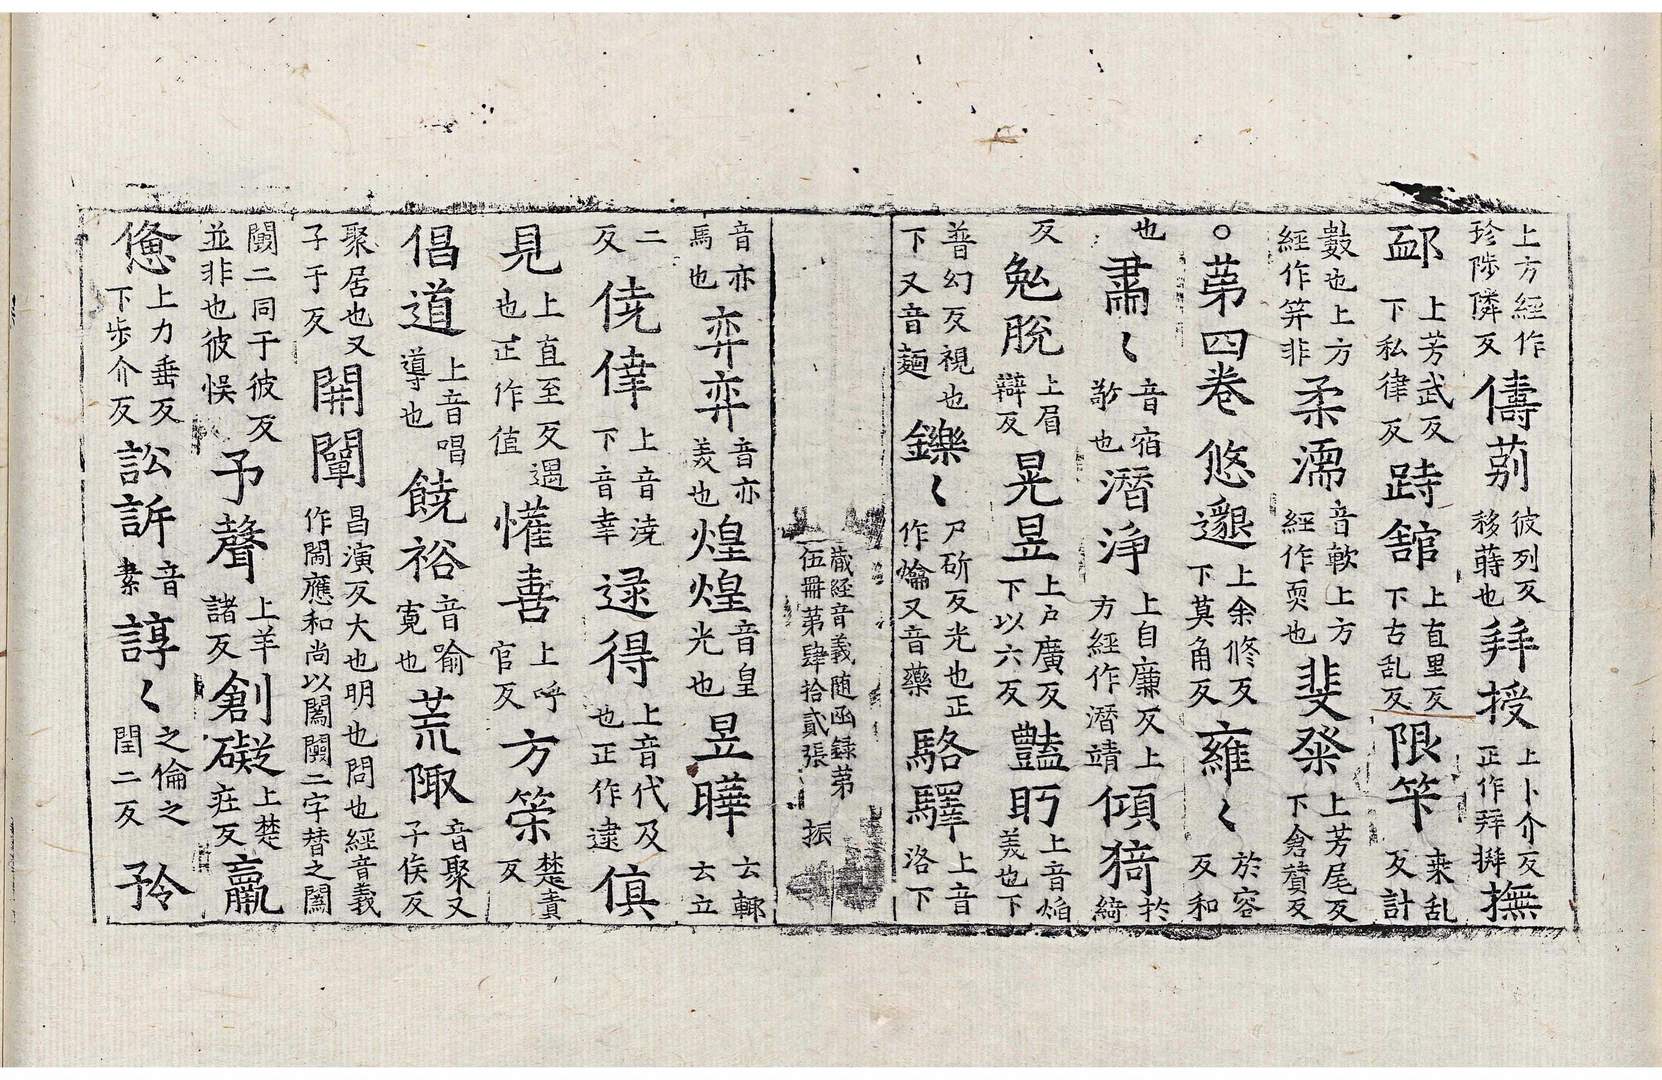 上方經作珍陟隣反儔莂彼列反移蒔也拜授上卜介反正作拜撫
䘏上芳武反下私律反跱舘上直里反下古乱反限筭桒乱反計
數也上方經作笇非柔濡音軟上方經作耎也斐粲上芳尾反下倉賛反
○苐四卷悠邈上余修反下莫角反雍〻於容反和
也肅〻音宿敬也潛淨上自廉反上方經作潛靖傾猗於綺
反勉脫上眉辯反晃昱上戶廣反下以六反豔眄上音焰義也下
普幻反視也下又音麺鑠〻尸斫反光也正作爚又音藥駱驛上音洛下
蔵經音義随函録苐伍冊苐肆拾貳張 振
音亦馬也弈弈音亦義也煌煌音皇光也昱曄云䣓云立
二反僥倖上音澆下音幸逯得上音代及也正作逮値
見上直至反遇也正作值懽喜上呼官反方䇿楚責反
倡道上音唱導也饒裕音喻寛也荒陬音聚又子侯反
聚居也又子于反開闡昌演反大也明也問也經音義作闒應和尚以闒闠二字替之闒
闅二同于彼反並非也彼悞予聲上羊諸反創礙上楚疘反羸
憊上力垂反下步介反訟訴音素諄〻之倫之閏二反矜